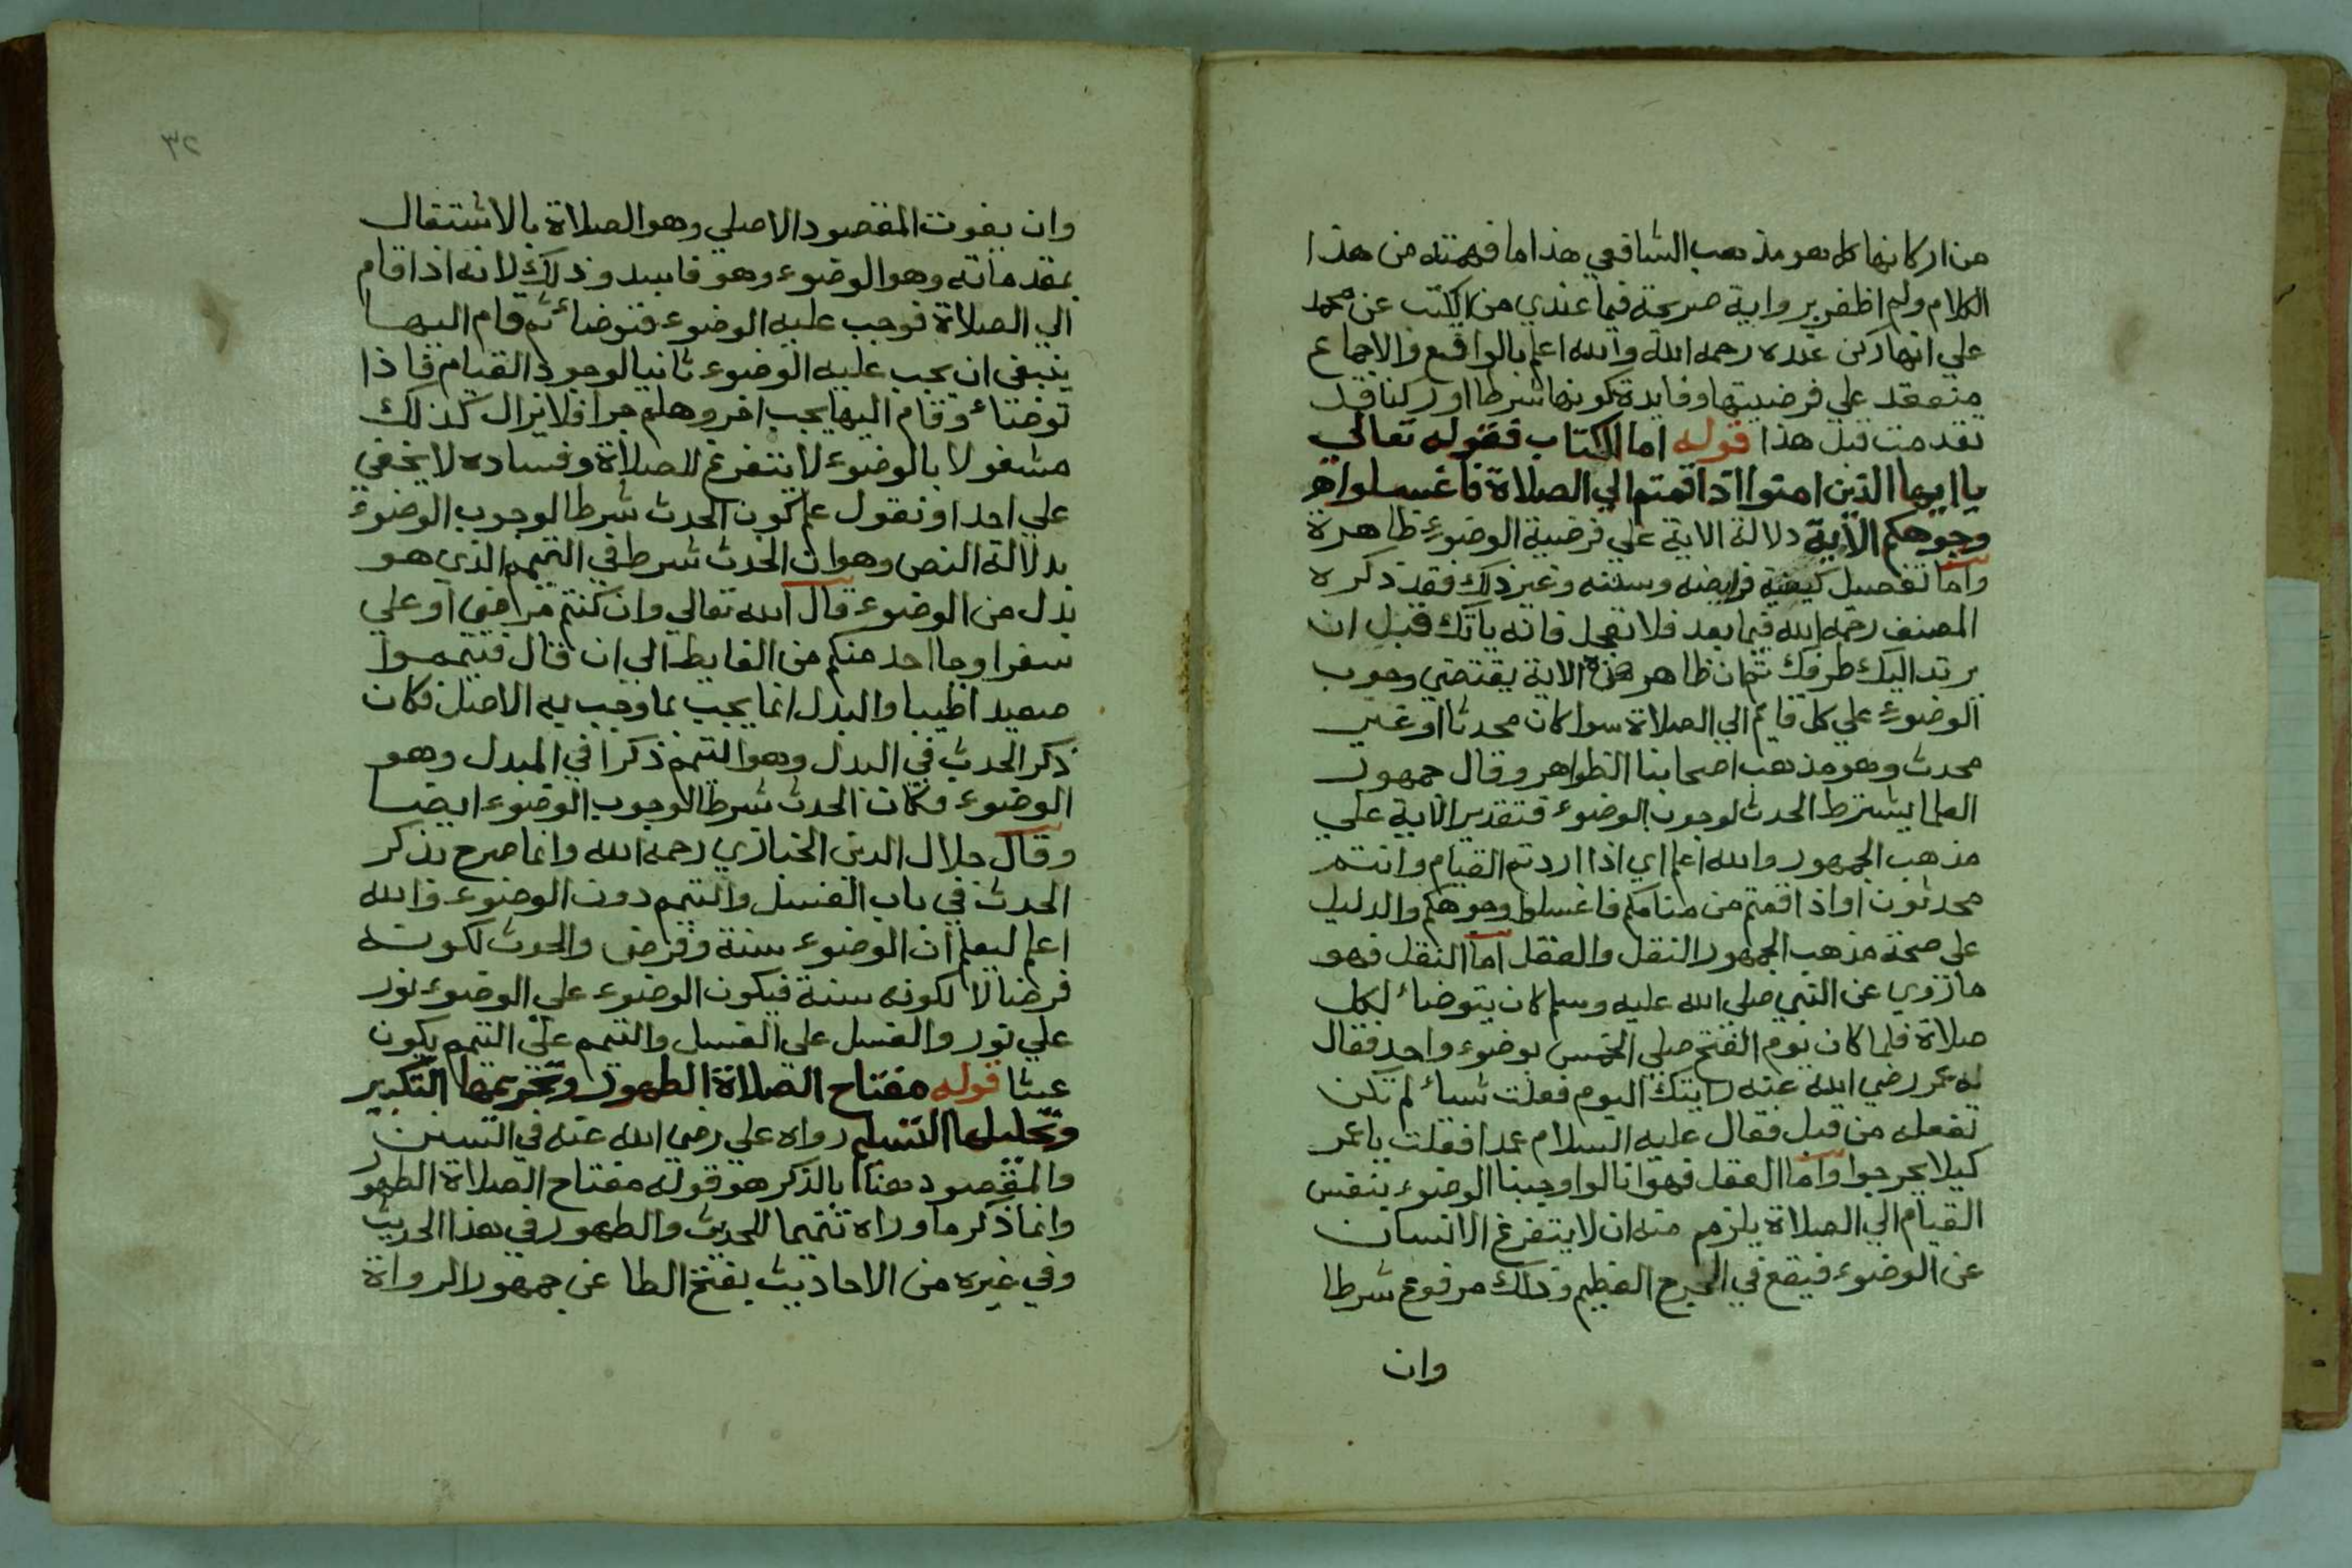 من اركانها كل هو مذهب الشافعي هذا ما فهمته من هذا
الكلام ولم اظفر برواية صريحة فيما عندي من الكتب عن محمد
علي انها ركن عنده رحمه الله والله اعلم بالواقع والاجماع
منعقد علي فرضيتها وفايدة كونها شرطا او ركنا قد
تقدمت قبل هذا قوله اما الكتاب فقوله تعالي
يا ايها الذين امنوا اذا قمتم الي الصلاة فاغسلوا
وجوهكم الآية دلالة الاية علي فرضية الوضوء ظاهرة
واما تفصيل كيفية فرايضه وسننه وغير ذلك فقد ذكره
المصنف رحمه الله فيما بعد فلا تعجل فانه ياتك قبل ان
يرتد اليك طرفك ثم ان ظاهر هذه الاية يقتضي وجوب
الوضوء علي كل قايم الي الصلاة سوا كان محدثا او غير
محدث وهو مذهب اصحابنا الظواهر وقال جمهور
العلما يشترط الحدث لوجوب الوضوء فتقدير الاية علي
مذهب الجمهور والله اعلم اي اذا اردتم القيام وانتم
محدثون او اذا قمتم من منامكم فاغسلوا وجوهكم والدليل
على صحة مذهب الجمهور النقل والعقل اما النقل فهو
ما روي عن النبي صلي الله عليه وسلم كان يتوضا لكل
صلاة فلما كان يوم الفتح صلي الخمس بوضوء واحد فقال
له عمر رضي الله عنه رايتك اليوم فعلت شياء لم تكن
تفعله من قبل فقال عليه السلام عمدا فعلت يا عمر
كيلا يحرجوا واما العقل فهو انا لو اوجبنا الوضوء بنفس
القيام الي الصلاة يلزم منه ان لا يتفرغ الانسان
عن الوضوء فيقع في الحرج العظيم وذلك مرفوع شرطا
وان
٣٢
وان يفوت المقصود الاصلي وهو الصلاة بالاشتغال
بمقدماته وهو الوضوء وهو فاسد وذلك لانه اذا قام
الي الصلاة فوجب عليه الوضوء فتوضاء ثم قام اليها
ينبغي ان يجب عليه الوضوء ثانيا لوجود القيام فاذا
توضاء وقام اليها يجب اخر وهلم جرا فلا يزال كذلك
مشغولا بالوضوء لا يتفرغ للصلاة وفساده لا يخفي
علي احد او نقول علم كون الحدث شرطا لوجوب الوضوء
بدلالة النص وهو ان الحدث شرط في التيمم الذي هو
بدل من الوضوء قال الله تعالي وان كنتم مرضي او علي
سفر او جا احد منكم من الغايط الي ان قال فتيمموا
صعيدا طيبا والبدل انما يجب بما وجب به الاصل فكان
ذكر الحدث في البدل وهو التيمم ذكرا في المبدل وهو
الوضوء فكان الحدث شرطا لوجوب الوضوء ايضا
وقال جلال الدين الخبازي رحمه الله وانما صرح بذكر
الحدث في باب الغسل والتيمم دون الوضوء والله
اعلم ليعلم ان الوضوء سنة وفرض والحدث لكونه
فرضا لا لكونه سنة فيكون الوضوء علي الوضوء نور
علي نور والغسل علي الغسل والتيمم علي التيمم يكون
عبثا قوله مفتاح الصلاة الطهور وتحريمها التكبير
وتحليلها التسليم رواه علي رضي الله عنه في السنن
والمقصود هنا بالذكر هو قوله مفتاح الصلاة الطهور
وانما ذكر ما وراه تتميما للحديث والطهور في هذا الحديث
وفي غيره من الاحاديث بفتح الطا عن جمهور الرواة